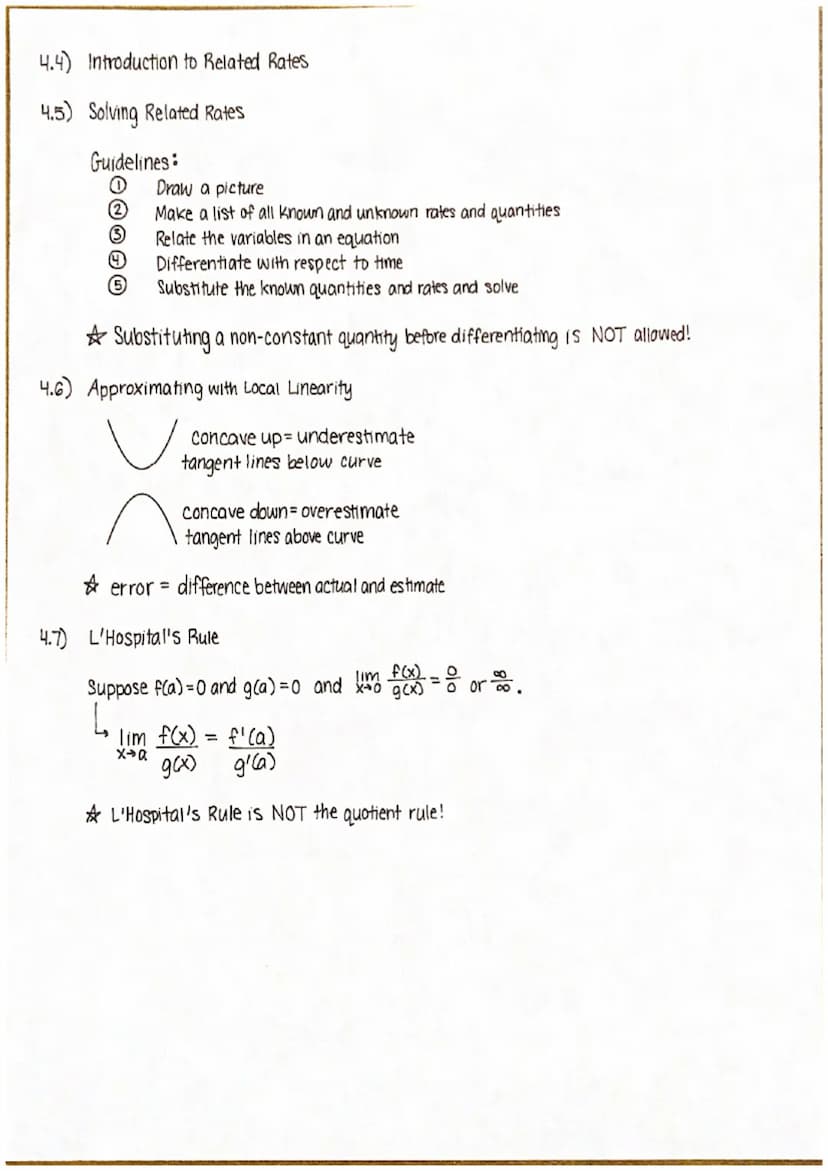 4.4) Introduction to Related Rates
4.5) Solving Related Rates
Guidelines:
① Draw a picture
② Make a list of all known and unknown rates and quantities
③ Relate the variables in an equation
④ Differentiate with respect to time
⑤ Substitute the known quantities and rates and solve
☆ Substituting a non-constant quantity before differentiating is NOT allowed!
4.6) Approximating with Local Linearity
concave up = underestimate
tangent lines below curve
concave down = overestimate
tangent lines above curve
☆ error = difference between actual and estimate
4.7) L'Hospital's Rule
Suppose f(a)=0 and g(a)=0 and lim x→0 f(x)/g(x) = 0/0 or ∞/∞.
↳ lim x→a f(x)/g(x) = f'(a)/g'(a)
☆ L'Hospital's Rule is NOT the quotient rule!